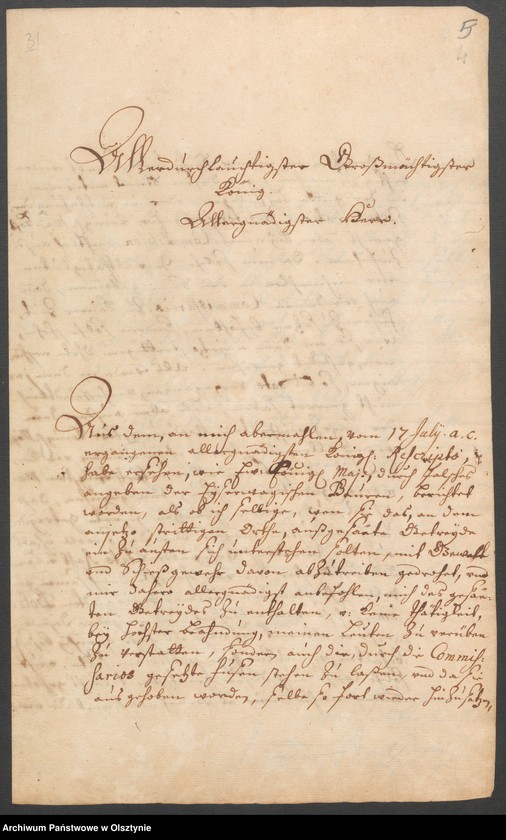 31
5
4
Allerdurchlauchtigster Großmächtigster
König.
Allergnädigster Herr.
Aus dem, an mich abermahlen, vom 17 July. a. c.
ergangenen allergnädigsten Königl. Rescripto,
habe ersehen, wie Ew. Königl. Maj. durch falsches
angeben der Bauren, berichtet
worden, als ob ich selbige, wen sie das, an dem
annoch strittigen Orthe, außgesäete Getreyde
ein zu ansten sich unterstehen solten, mit Gewalt
und Schießgewehr davon abzutreiben gedrohet, und
mir dahero allergnädigst anbefohlen, mich des gesäe-
ten Getreydes zu enthalten, u. keine Thätigkeit,
bey höchster Beahndung, meinen Leuten zu verüben
zu verstatten, sondern auch die, durch die Commis-
sarios gesetzte stehen zu laßen, und da sie
ausgehoben worden, selbe so fort wieder hinzusetzen,
Archiwum Państwowe w Olsztynie